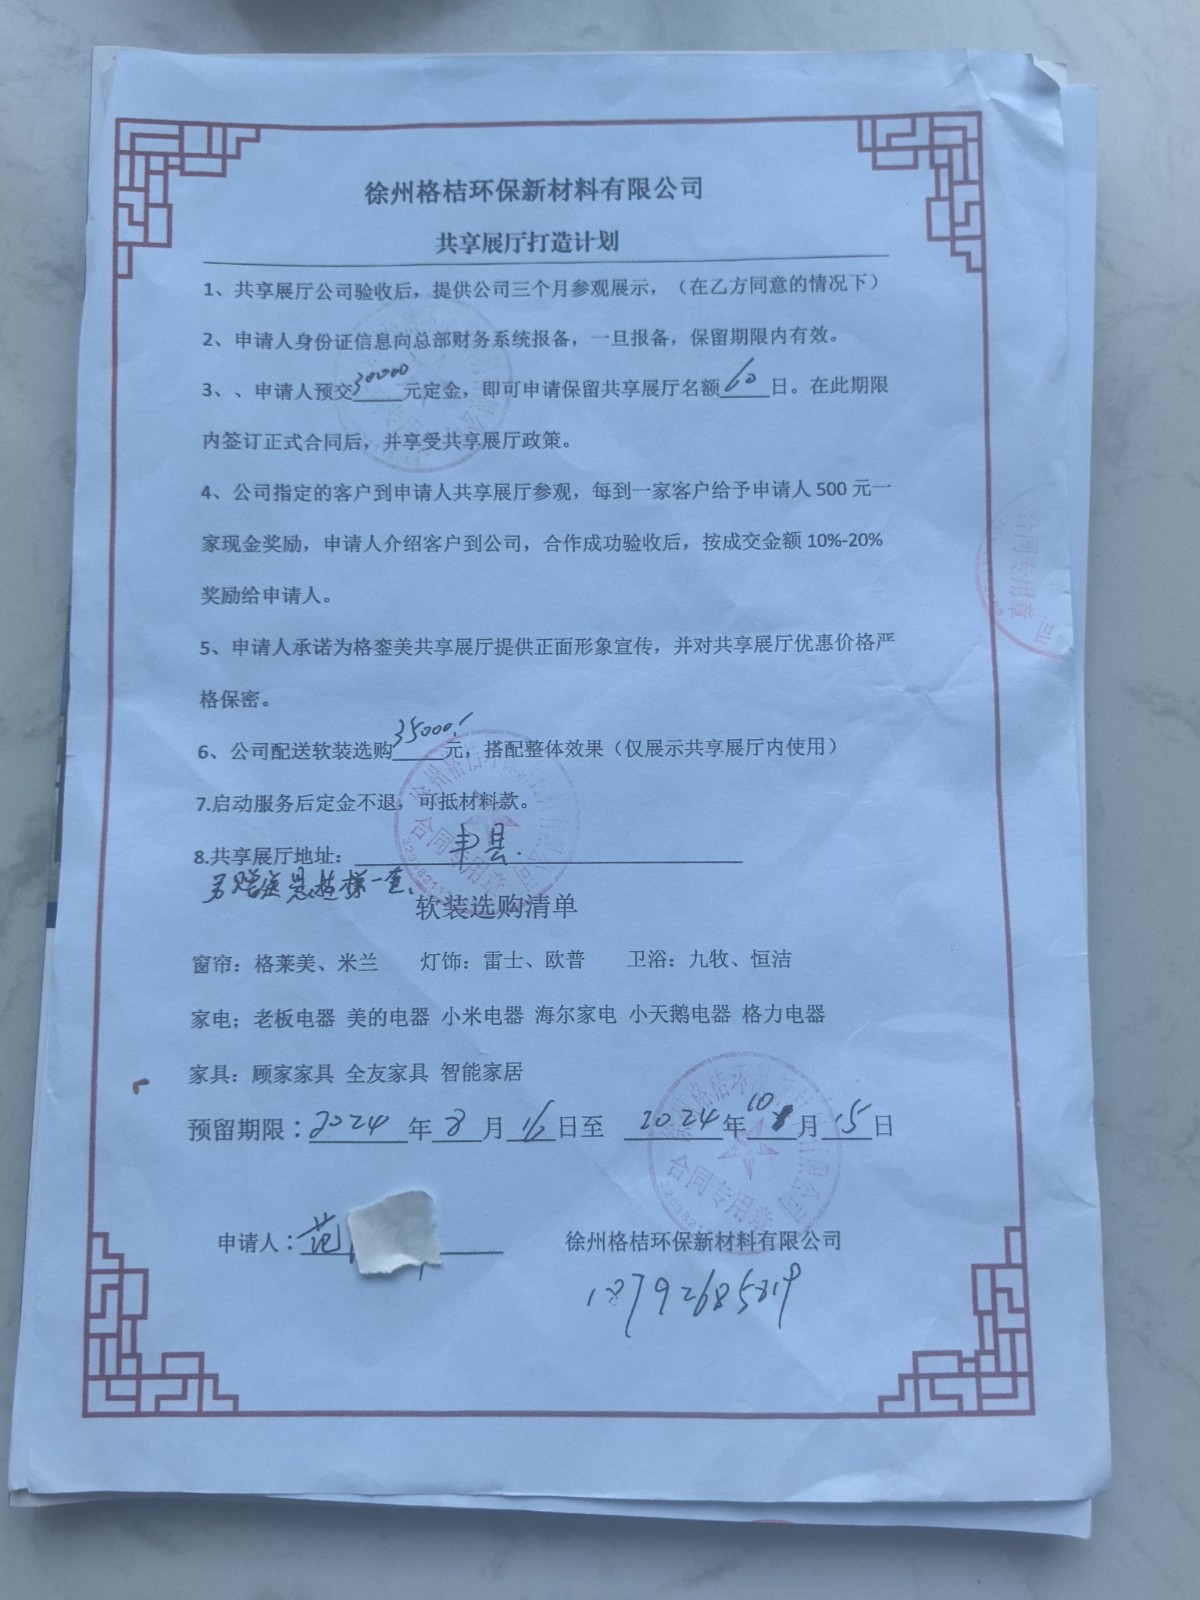 徐州格桔环保新材料有限公司
共享展厅打造计划
1、共享展厅公司验收后，提供公司三个月参观展示，（在乙方同意的情况下）
2、申请人身份证信息向总部财务系统报备，一旦报备，保留期限内有效。
3、、申请人预交30000元定金，即可申请保留共享展厅名额60日。在此期限
内签订正式合同后，并享受共享展厅政策。
4、公司指定的客户到申请人共享展厅参观，每到一家客户给予申请人500元一
家现金奖励，申请人介绍客户到公司，合作成功验收后，按成交金额10%-20%
奖励给申请人。
5、申请人承诺为格銮美共享展厅提供正面形象宣传，并对共享展厅优惠价格严
格保密。
6、公司配送软装选购35000元，搭配整体效果（仅展示共享展厅内使用）
7.启动服务后定金不退，可抵材料款。
8.共享展厅地址：丰县.
另赠送 一套
软装选购清单
窗帘：格莱美、米兰 灯饰：雷士、欧普 卫浴：九牧、恒洁
家电；老板电器 美的电器 小米电器 海尔家电 小天鹅电器 格力电器
家具：顾家家具 全友家具 智能家居
预留期限：2024年8月16日至 2024年10月15日
申请人：范
徐州格桔环保新材料有限公司
18792685819
合同专用章
合同专用章
合同专用章